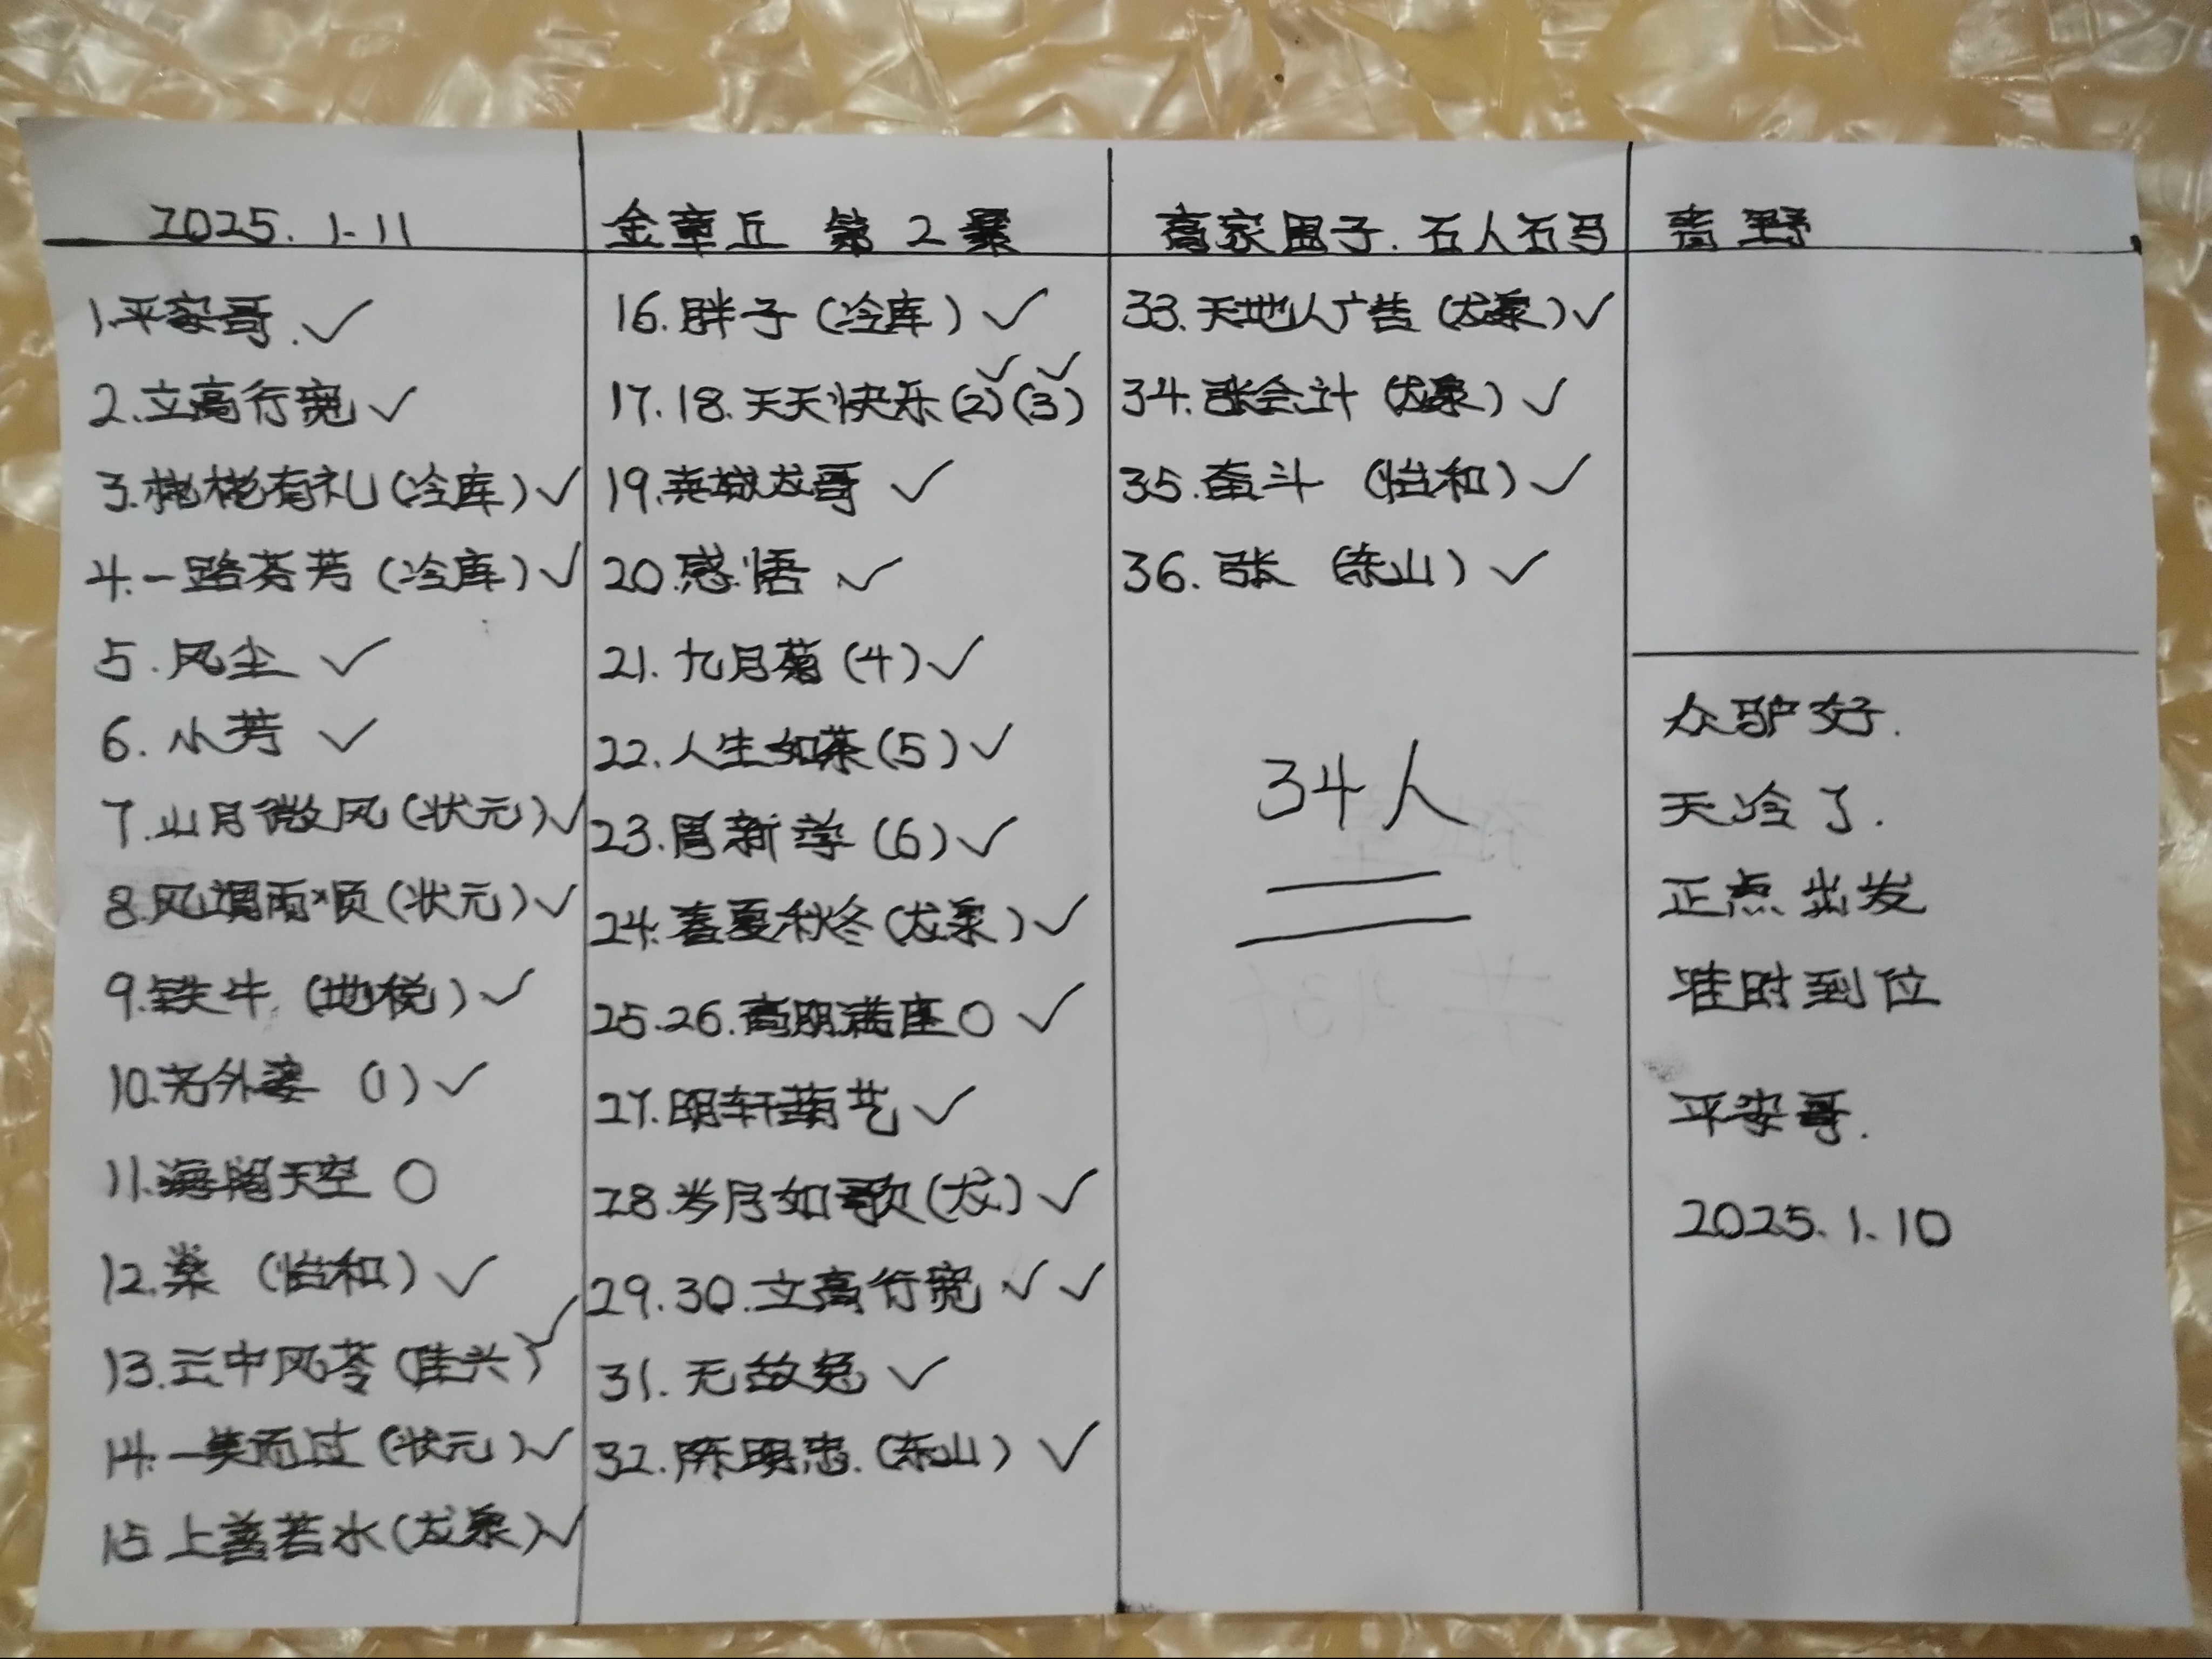 2025. 1-11
1.平安哥. ✓
2.立高行宽 ✓
3.彬彬有礼(冷库) ✓
4.一路芬芳(冷库) ✓
5.风尘 ✓
6.小芳 ✓
7.山月微风(状元) ✓
8.风调雨顺(状元) ✓
9.铁牛.(地税) ✓
10. (1) ✓
11.海阔天空 ○
12.柴 (怡和) ✓
13.云中风苓(佳兴) ✓
14.一笑而过(状元) ✓
15 上善若水(龙泉) ✓
金章丘 第 2 累
16.胖子(冷库) ✓
✓ ✓
17.18.天天快乐(2)(3)
19.英雄龙哥 ✓
20.感悟 ✓
21.九月菊(4) ✓
22.人生如茶(5) ✓
23.周新学(6) ✓
24.春夏秋冬(龙泉) ✓
25.26.高朋满座○ ✓
27.明轩 艺 ✓
28.岁月如歌(龙) ✓
29.30.立高行宽 ✓ ✓
31.无敌兔 ✓
32.陈明忠.(东山) ✓
高家围子.石人石马
33.天地人广告(龙泉) ✓
34.张会计(龙泉) ✓
35.奋斗 (怡和) ✓
36.张 (东山) ✓
34人
青野
众驴好.
天冷了.
正点出发
准时到位
平安哥.
2025.1.10